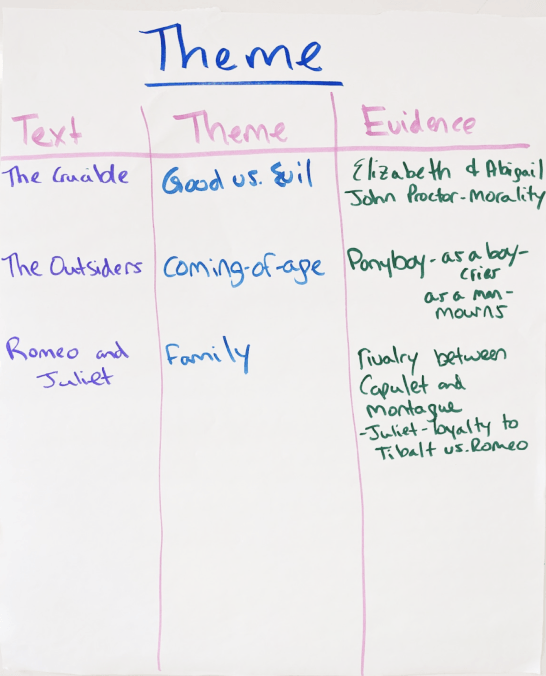 Theme
Text Theme Evidence
The Crucible Good vs. Evil Elizabeth & Abigail
John Proctor - morality
The Outsiders Coming-of-age Ponyboy - as a boy -
cries
as a man -
mourns
Romeo and Family rivalry between
Juliet Capulet and
montague
- Juliet - loyalty to
Tibalt vs. Romeo